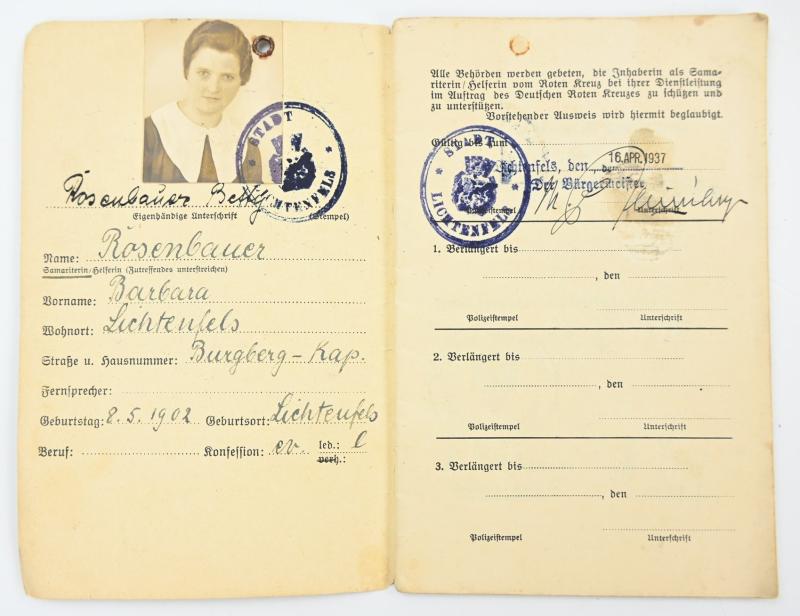 STADT
LICHTENFELS
Rosenbauer Betty
Eigenhändige Unterschrift (Stempel)
Name: Rosenbauer
Samariterin/Helferin (Zutreffendes unterstreichen)
Vorname: Barbara
Wohnort: Lichtenfels
Straße u. Hausnummer: Burgberg-Kap.
Fernsprecher:
Geburtstag: 8.5.1902 Geburtsort: Lichtenfels
Beruf: Konfession: ev. led.: l
verh.:
Alle Behörden werden gebeten, die Inhaberin als Sama-
riterin/Helferin vom Roten Kreuz bei ihrer Dienstleistung
im Auftrag des Deutschen Roten Kreuzes zu schützen und
zu unterstützen.
Vorstehender Ausweis wird hiermit beglaubigt.
Gültig bis zum
STADT
LICHTENFELS
Lichtenfels, den 16. APR. 1937
Der Bürgermeister
Unterschrift
1. Verlängert bis
, den
Polizeistempel Unterschrift
2. Verlängert bis
, den
Polizeistempel Unterschrift
3. Verlängert bis
, den
Polizeistempel Unterschrift